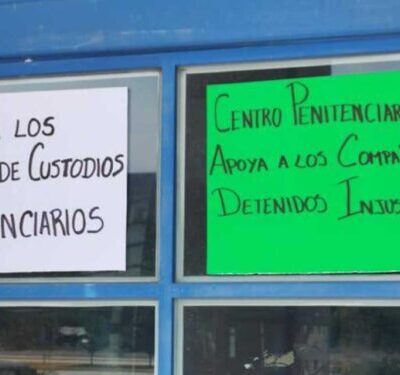 LOS
DE CUSTODIOS
NCIARIOS
CENTRO PENITENCIAR
APOYA A LOS COMPA
DETENIDOS INJUS